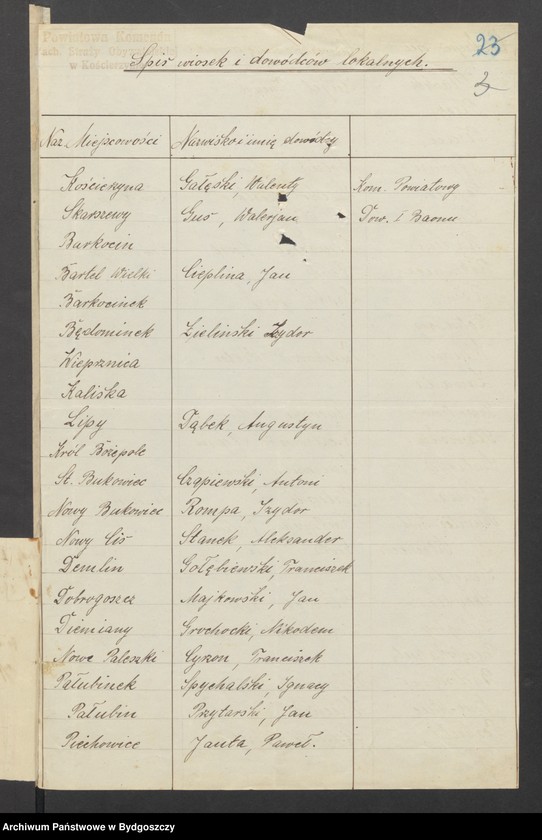 Powiatowa Komenda
Straży Obywatelskiej
w Kościerzynie
23
3
Spis wiosek i dowódców lokalnych.
Naz. Miejscowości Nazwisko i imię dowódzy
Kościeżyna Gałęski, Walenty Kom. Powiatowy
Skarszewy Guś, Walerjan Dow. I Baonu
Barkocin
Bartel Wielki Cieplina, Jan
Barkocinek
Będominek Zieliński Izydor
Wieprznica
Kaliska
Lipy Dąbek, Augustyn
Król Bożepole
St. Bukowiec Czapiewski, Antoni
Nowy Bukowiec Rompa, Izydor
Nowy Ciś Stanek, Aleksander
Demlin Gołębiewski, Franciszek
Dobrogoszcz Majkowski, Jan
Dziemiany Grochocki, Nikodem
Nowe Paleszki Cyzon, Franciszek
Pałubinek Spychalski, Ignacy
Pałubin Przytarski, Jan
Piechowice Janta, Paweł.
Archiwum Państwowe w Bydgoszczy